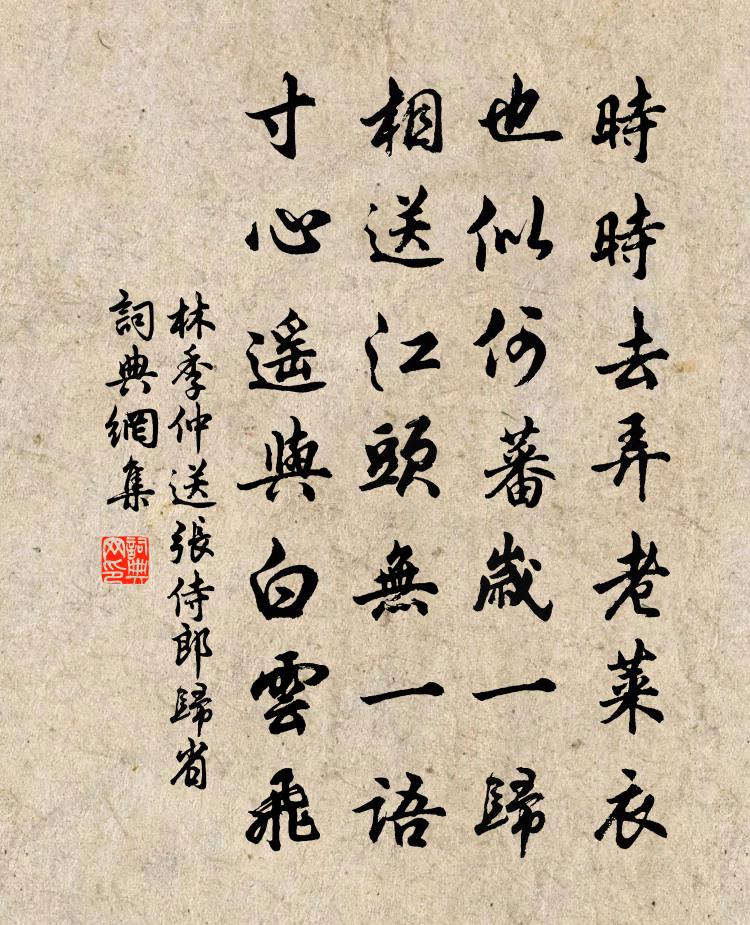 時時去弄老萊衣
也似何蕃歲一歸
相送江頭無一語
寸心遥與白雲飛
林季仲送張侍郎歸省
詞典網集
詞典网印